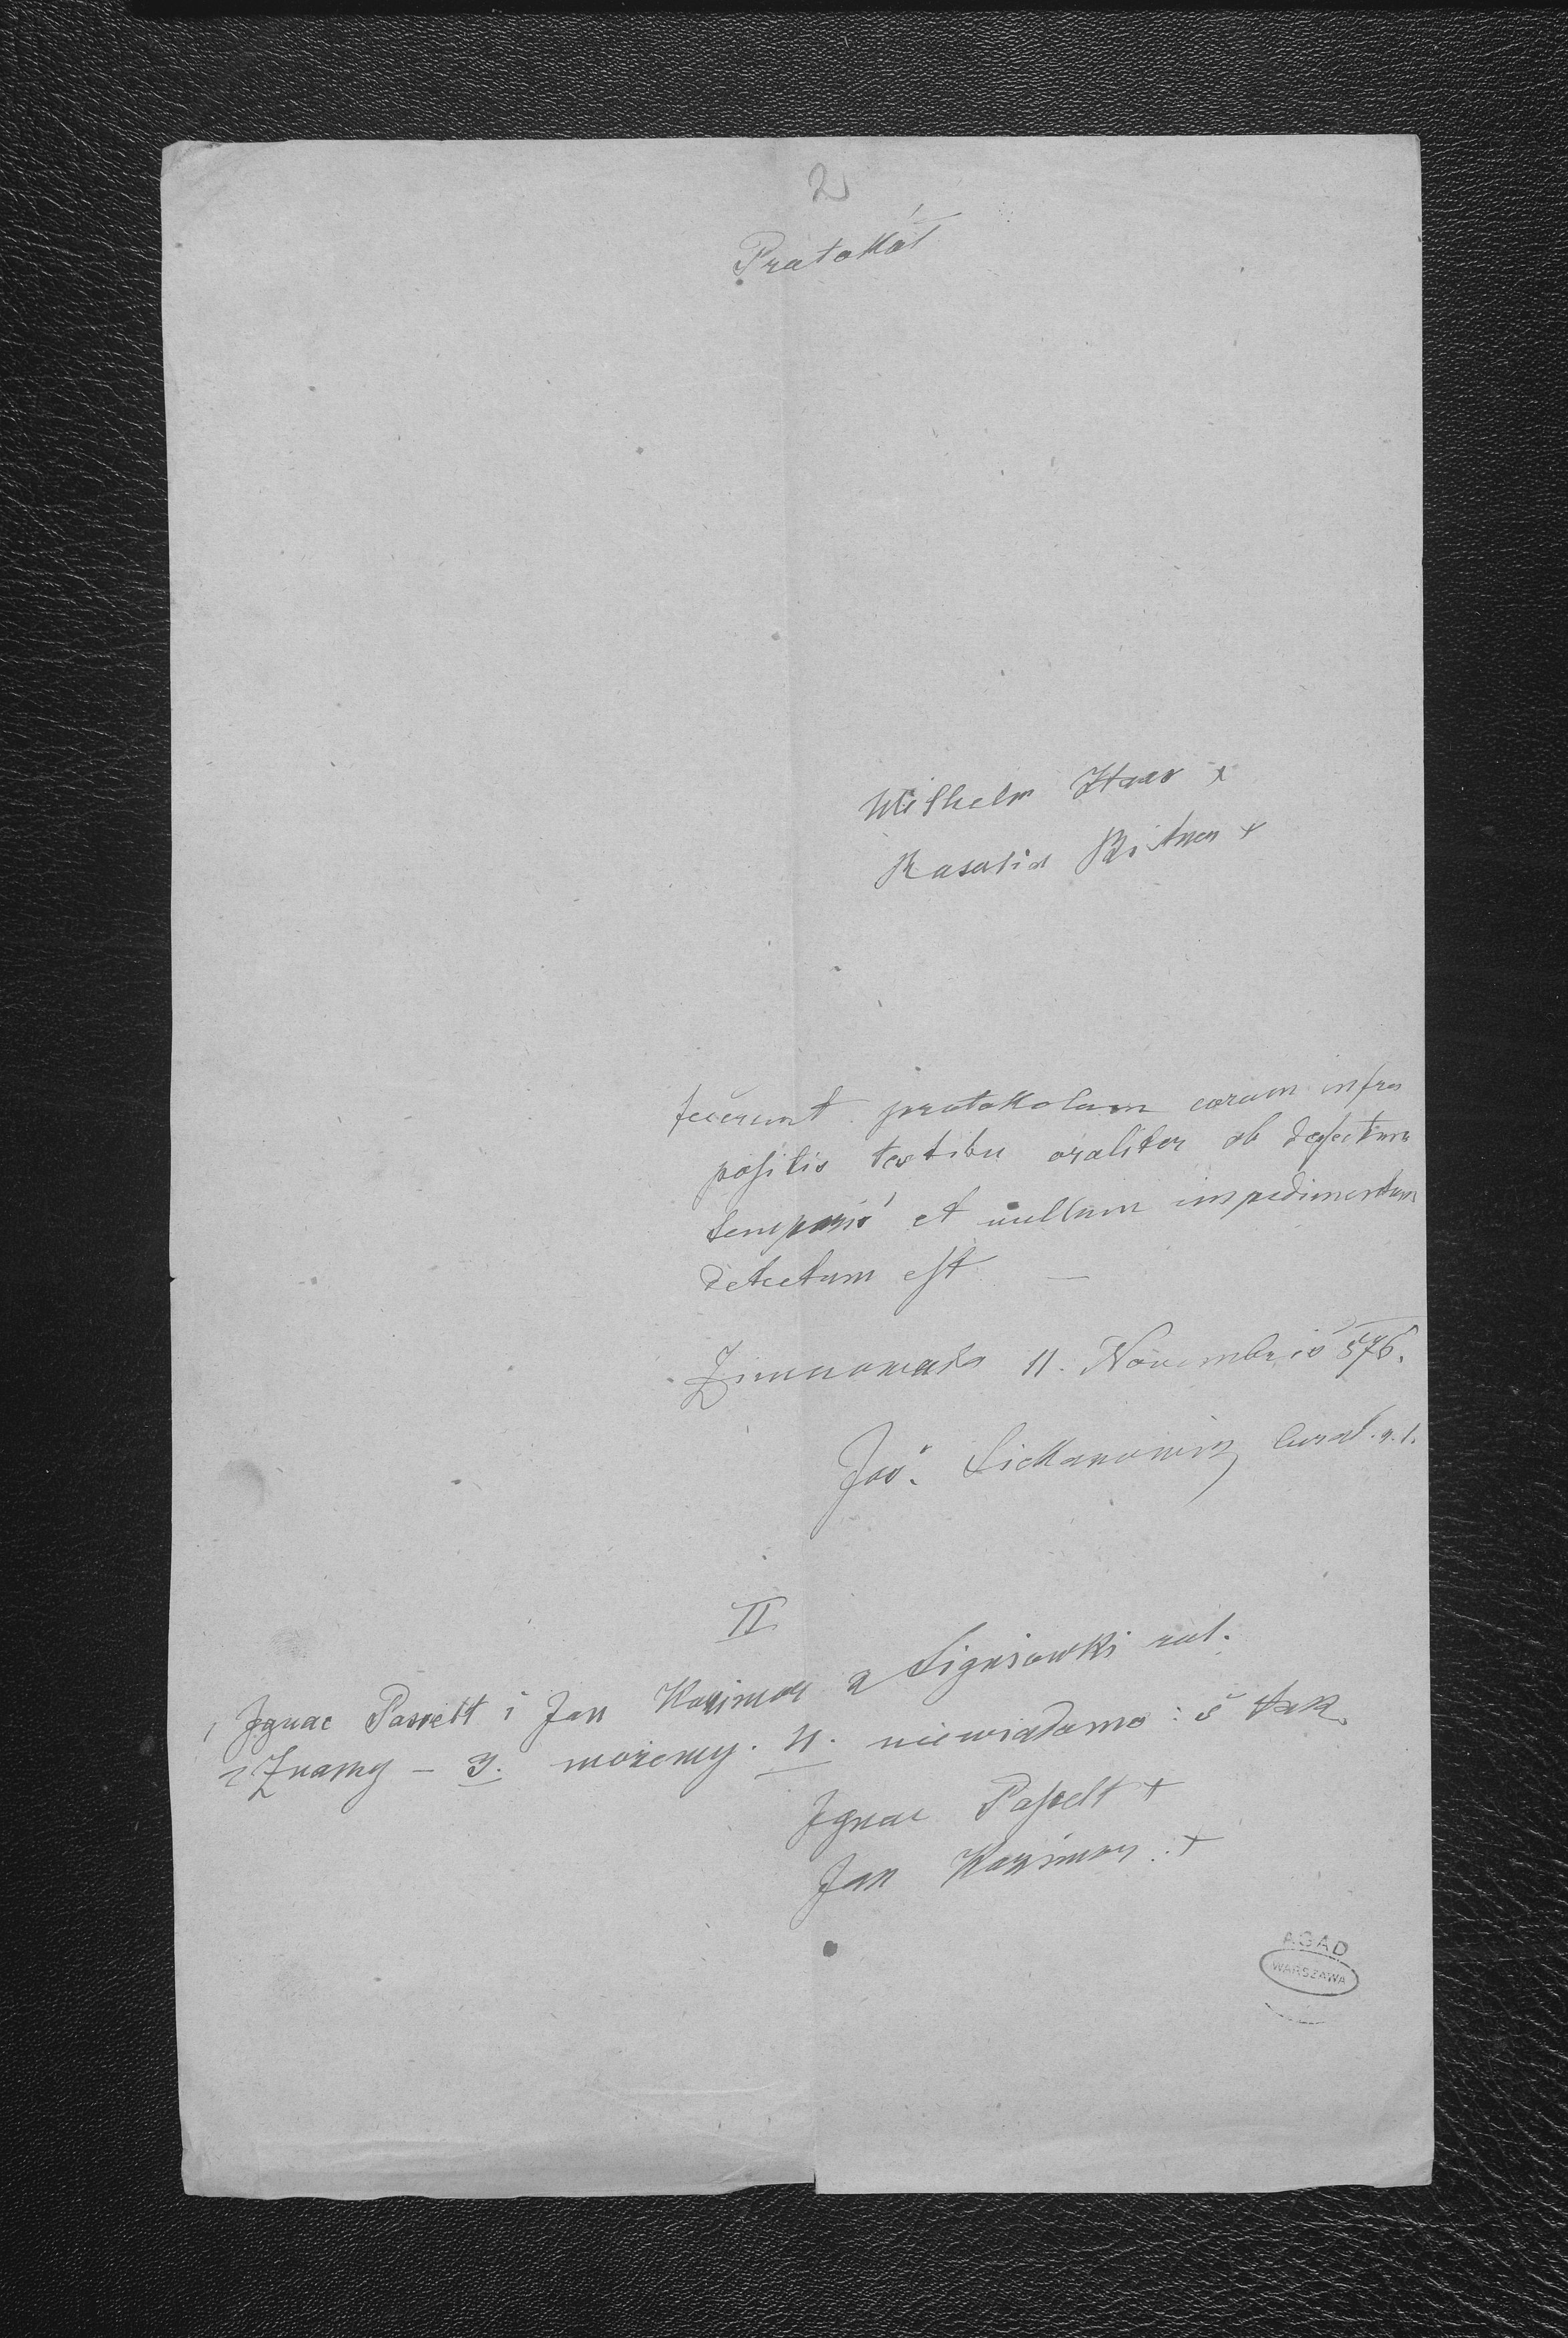 2
Protokół
Wilhelm Haas +
Rosalia Bitner +
fecerunt protokolum coram infra
positis testibu oraliter ob defectum
temporis et nullum impedimentum
detectum est —
Zimnowoda 11. Novembris 876.
Jos. curat. r. l.
II
1 Ignac Posselt i Jan Kazimer z rol.
2 Znamy – 3. możemy. 4. niewiadomo: 5 tak
Ignac Posselt +
Jan Kazimer +
AGAD
WARSZAWA